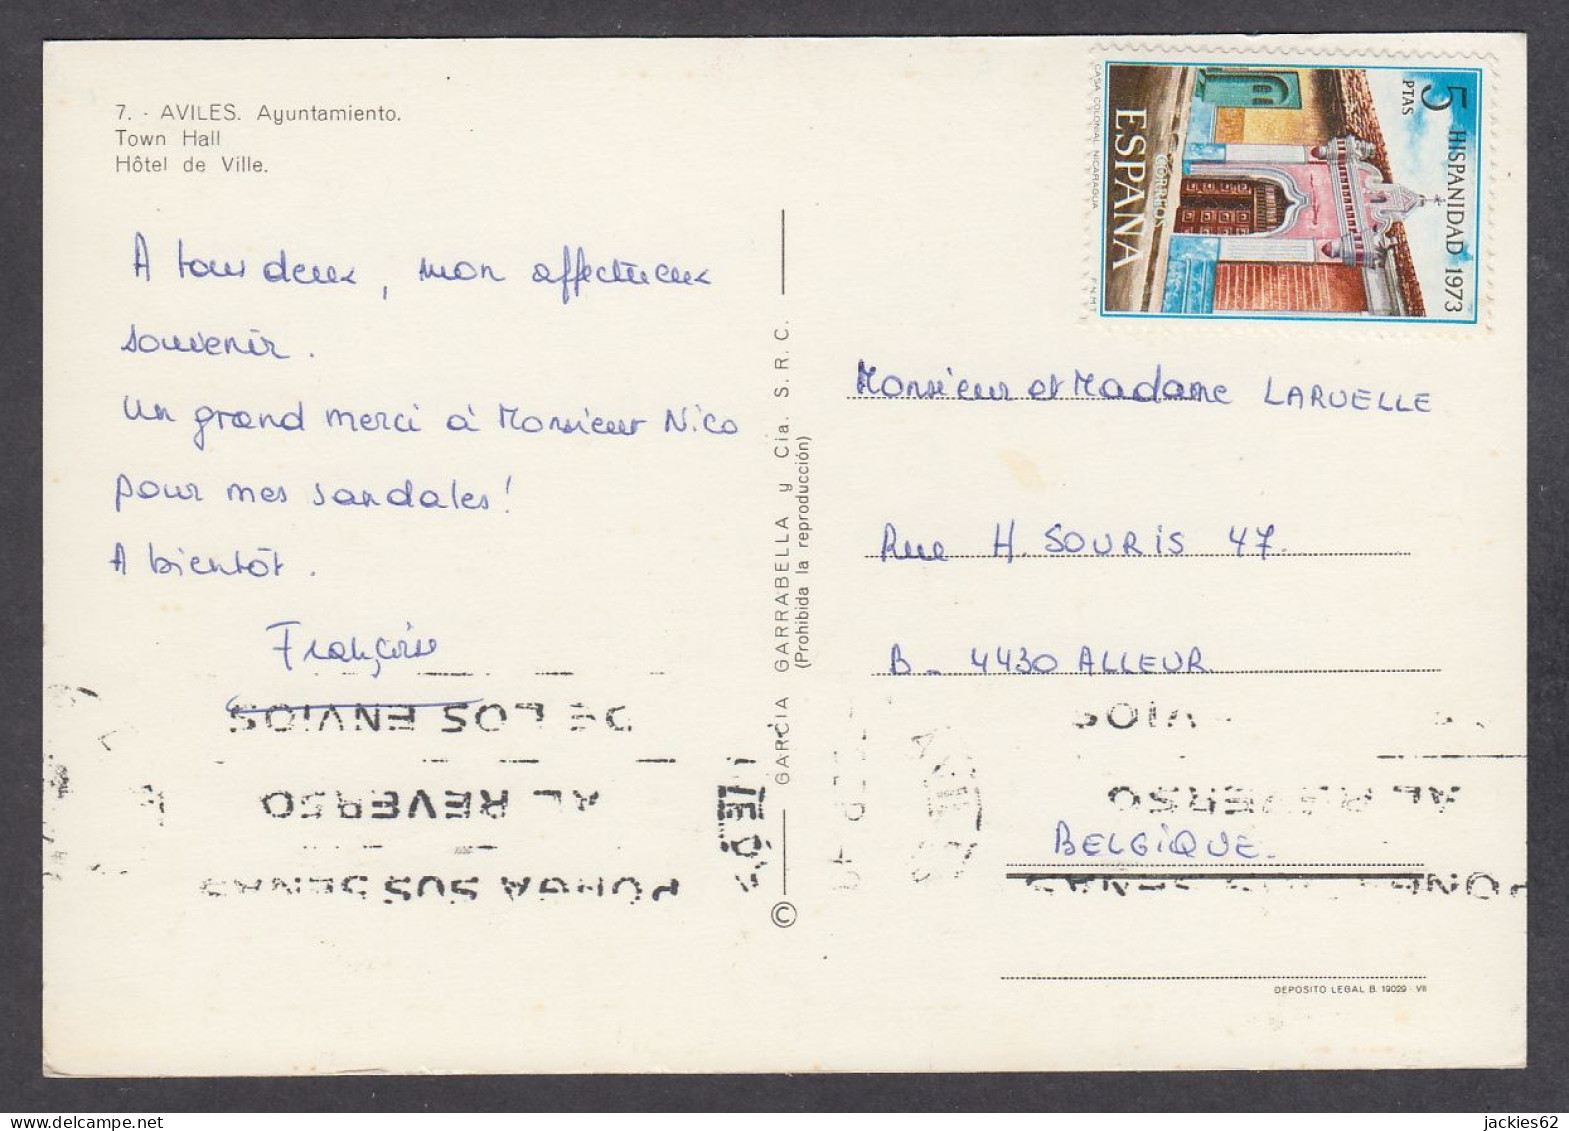 7. - AVILES. Ayuntamiento.
Town Hall
Hôtel de Ville.
A tous deux, mon affectueux
souvenir.
Un grand merci à Monsieur Nico
pour mes sandales!
A bientôt.
Françoise
GARCIA GARRABELLA y Cia. S. R. C.
(Prohibida la reproducción)
©
5 PTAS
HISPANIDAD 1973
CORREOS
ESPAÑA
CASA COLONIAL NICARAGUA
F.N.M.T.
Monsieur et Madame LARUELLE
Rue H. SOURIS 47.
B - 4430 ALLEUR
BELGIQUE.
PONGA SUS SEÑAS
AL REVERSO
DE LOS ENVIOS
AL REVERSO
DEPOSITO LEGAL B. 19029 - VII
jackies62